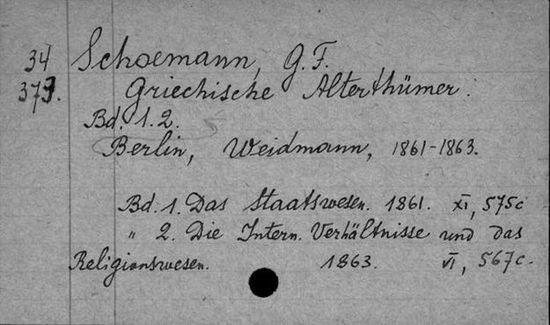 34
373.
Schoemann, G. F.
Griechische Alterthümer.
Bd. 1. 2.
Berlin, Weidmann, 1861-1863.
Bd. 1. Das Staatswesen. 1861. XI, 575c
" 2. Die Intern. Verhältnisse und das
Religionswesen. 1863. VI, 567c.